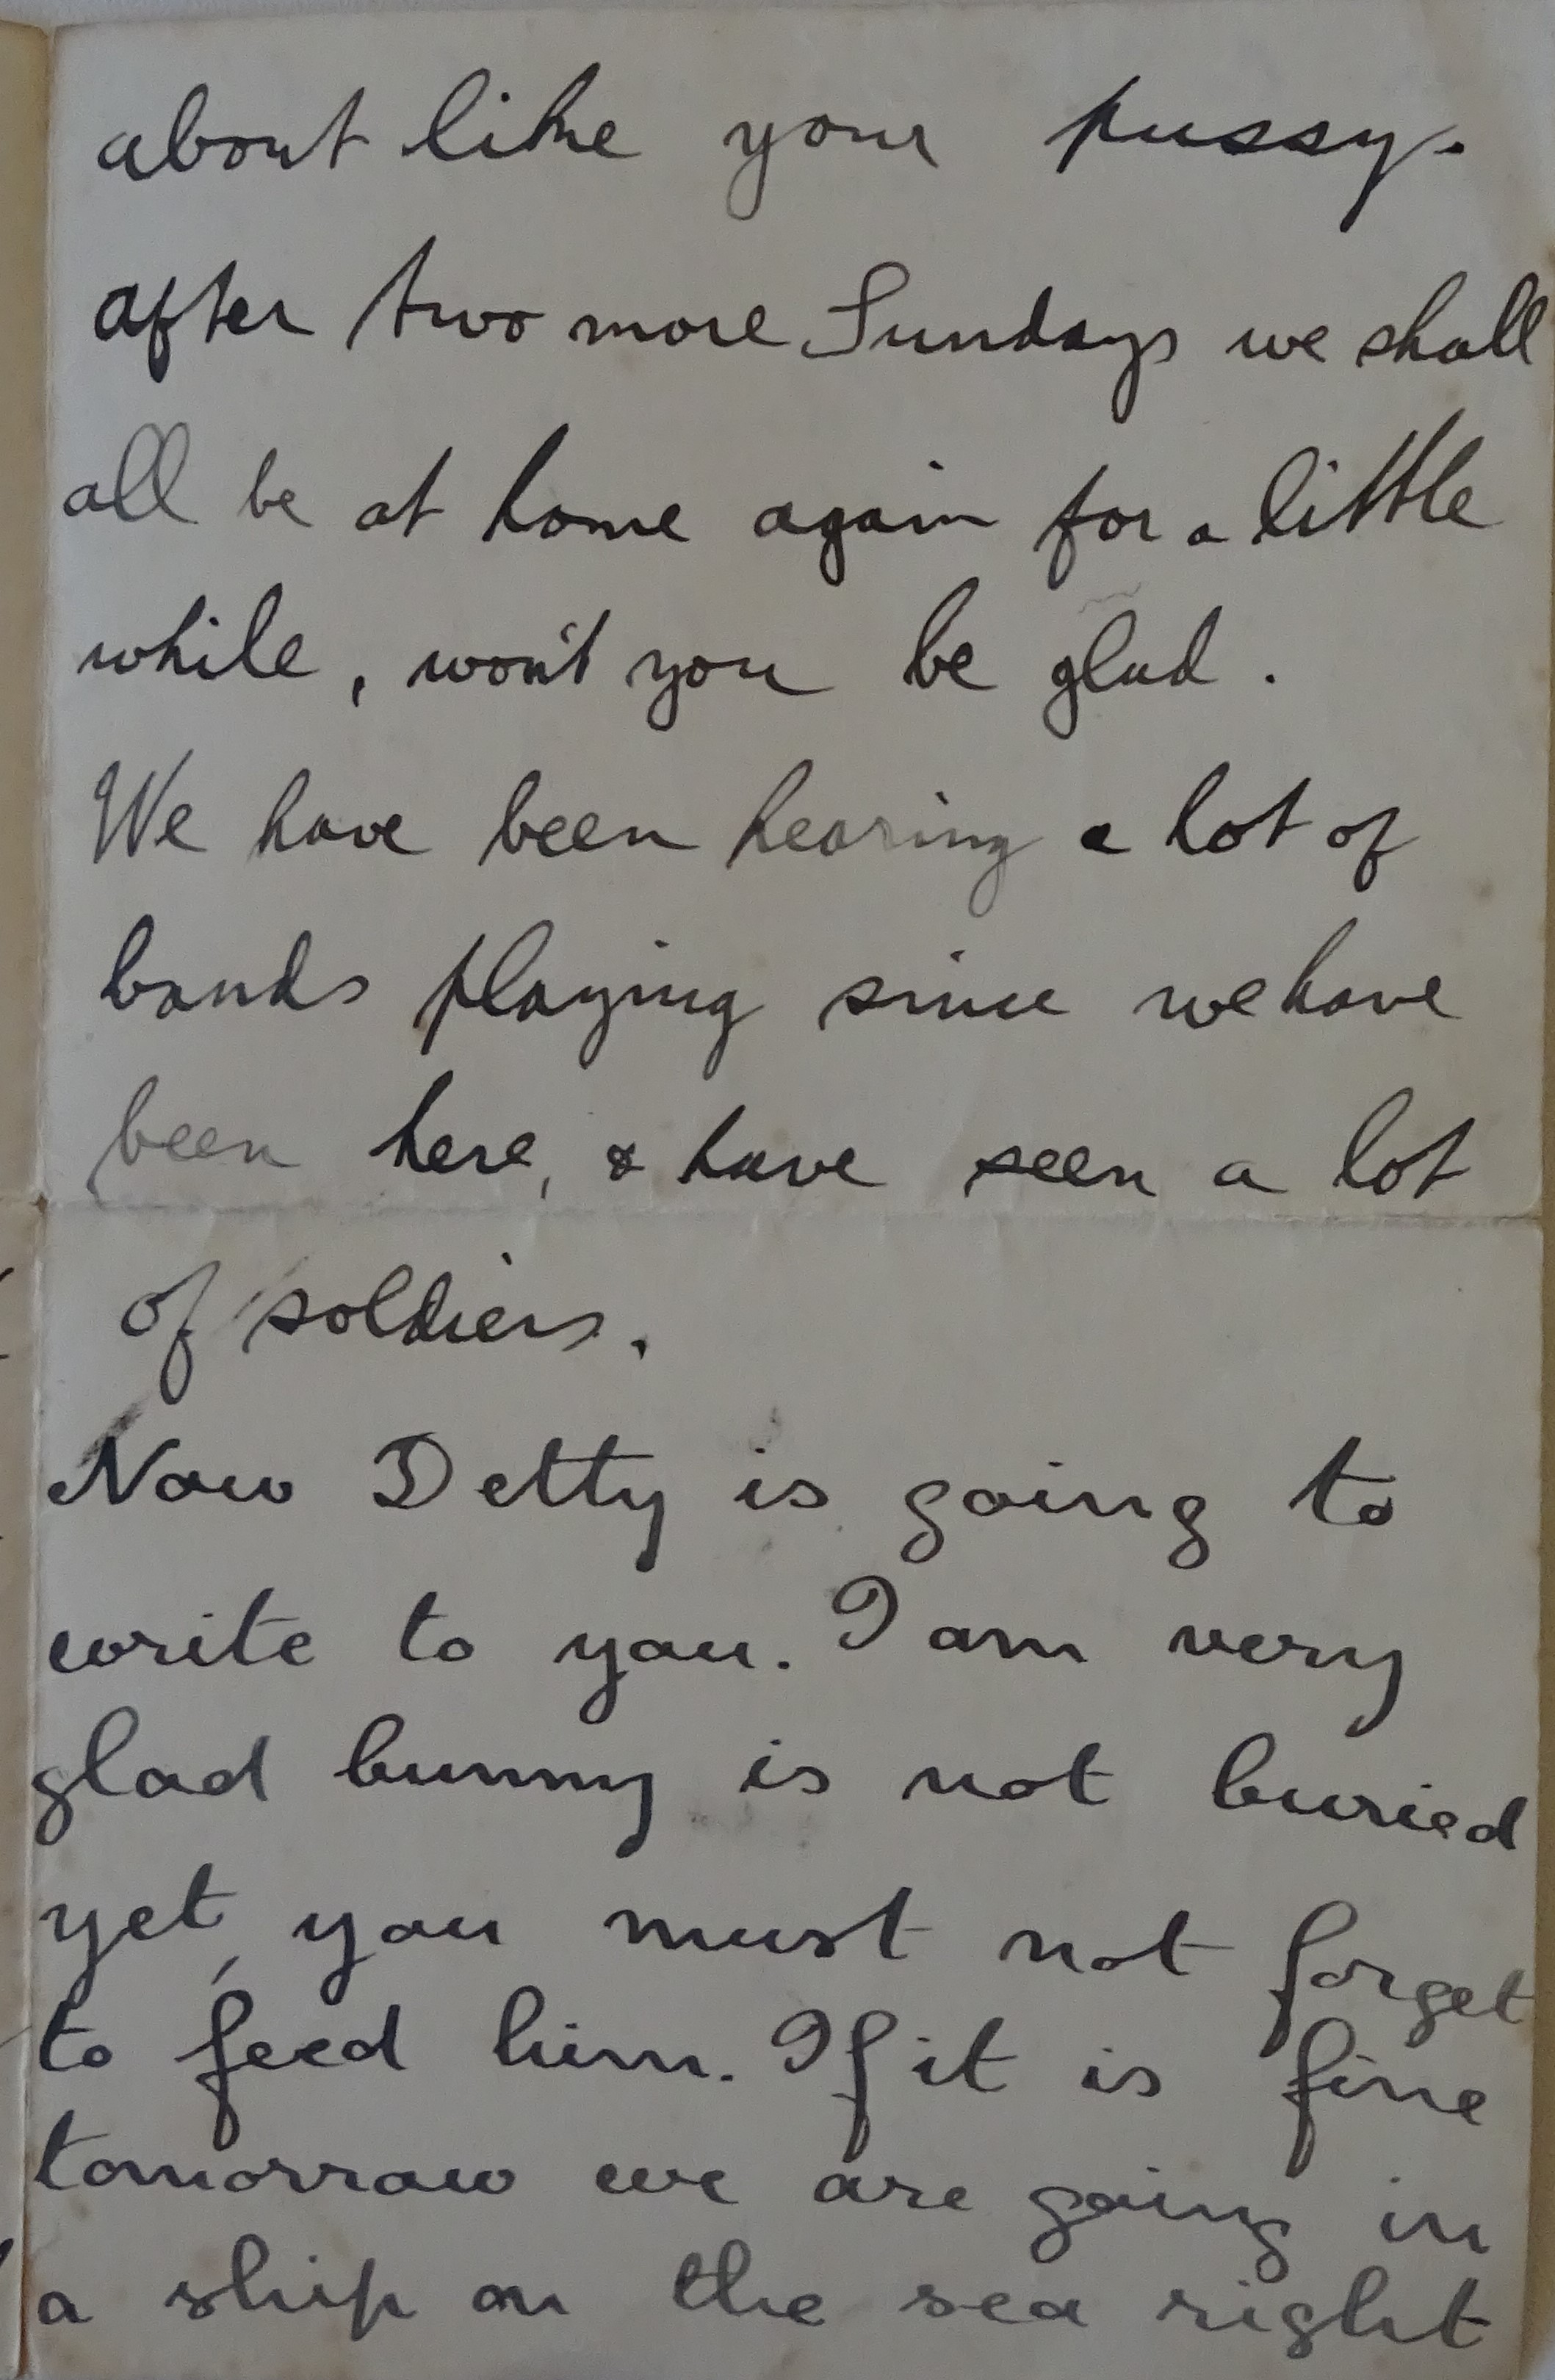 about like your pussy.
after two more Sundays we shall
all be at home again for a little
while, won't you be glad.
We have been hearing a lot of
bands playing since we have
been here, & have seen a lot
of soldiers.
Now Detty is going to
write to you. I am very
glad bunny is not buried
yet, you must not forget
to feed him. If it is fine
tomorrow we are going in
a ship on the sea right